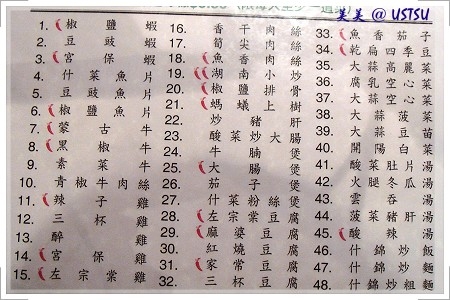 美美 @ USTSU
1. 椒鹽蝦
2. 豆豉蝦
3. 宮保蝦
4. 什菜魚片
5. 豆豉魚片
6. 椒鹽魚片
7. 蒙古牛
8. 黑椒牛
9. 素菜牛
10. 青椒牛肉絲
11. 辣子雞
12. 三杯雞
13. 醉雞
14. 宮保雞
15. 左宗棠雞
16. 香干肉絲
17. 筍尖肉絲
18. 魚香肉絲
19. 湖南小炒
20. 椒鹽排骨
21. 螞蟻上樹
22. 炒豬肝
23. 酸菜炒大腸
24. 牛腩煲
25. 大腸煲
26. 茄子煲
27. 什菜粉絲煲
28. 左宗棠豆腐
29. 麻婆豆腐
30. 紅燒豆腐
31. 家常豆腐
32. 三杯豆腐
33. 魚香茄子
34. 乾扁四季豆
35. 大蒜高麗菜
36. 腐乳空心菜
37. 大蒜空心菜
38. 大蒜菠菜
39. 大蒜豆苗
40. 開陽白菜
41. 酸菜肚片湯
42. 火腿冬瓜湯
43. 雲吞湯
44. 菠菜豬肝湯
45. 酸辣湯
46. 什錦炒飯
47. 什錦炒麵
48. 什錦炒粗麵